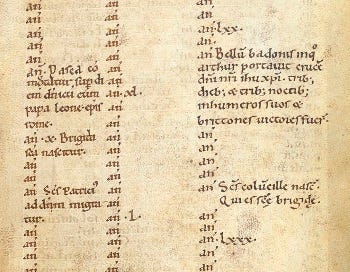 an̄
an̄
an̄
an̄
an̄
an̄. Pasca cō
mutatur sup̄ di
em dn̄icū cum
papa leone epis
rome.
an̄ .x. Brigida
sc̄a nascitur.
an̄
an̄
an̄ Sc̄s Patriciꝰ
ad dn̄m migra
tur.
an̄
an̄
an̄
an̄
an̄
an̄
an̄
an̄
an̄
an̄
an̄ .xl.
an̄
an̄
an̄
an̄
an̄
an̄
an̄
an̄
an̄ .L.
an̄
an̄
an̄
an̄
an̄
an̄
an̄ .lxx.
an̄
an̄ Bellū badonis inq̊
arthur portavit crucē
dn̄i nr̄i ihu xp̄i. trib;
dieb; & trib; noctib;
inhumeros suos &
brittones victores fuer̄.
an̄
an̄
an̄
an̄
an̄ Sc̄s columcille nasc̄.
Quies sc̄e brigide.
an̄
an̄
an̄ .lxxx.
an̄
an̄